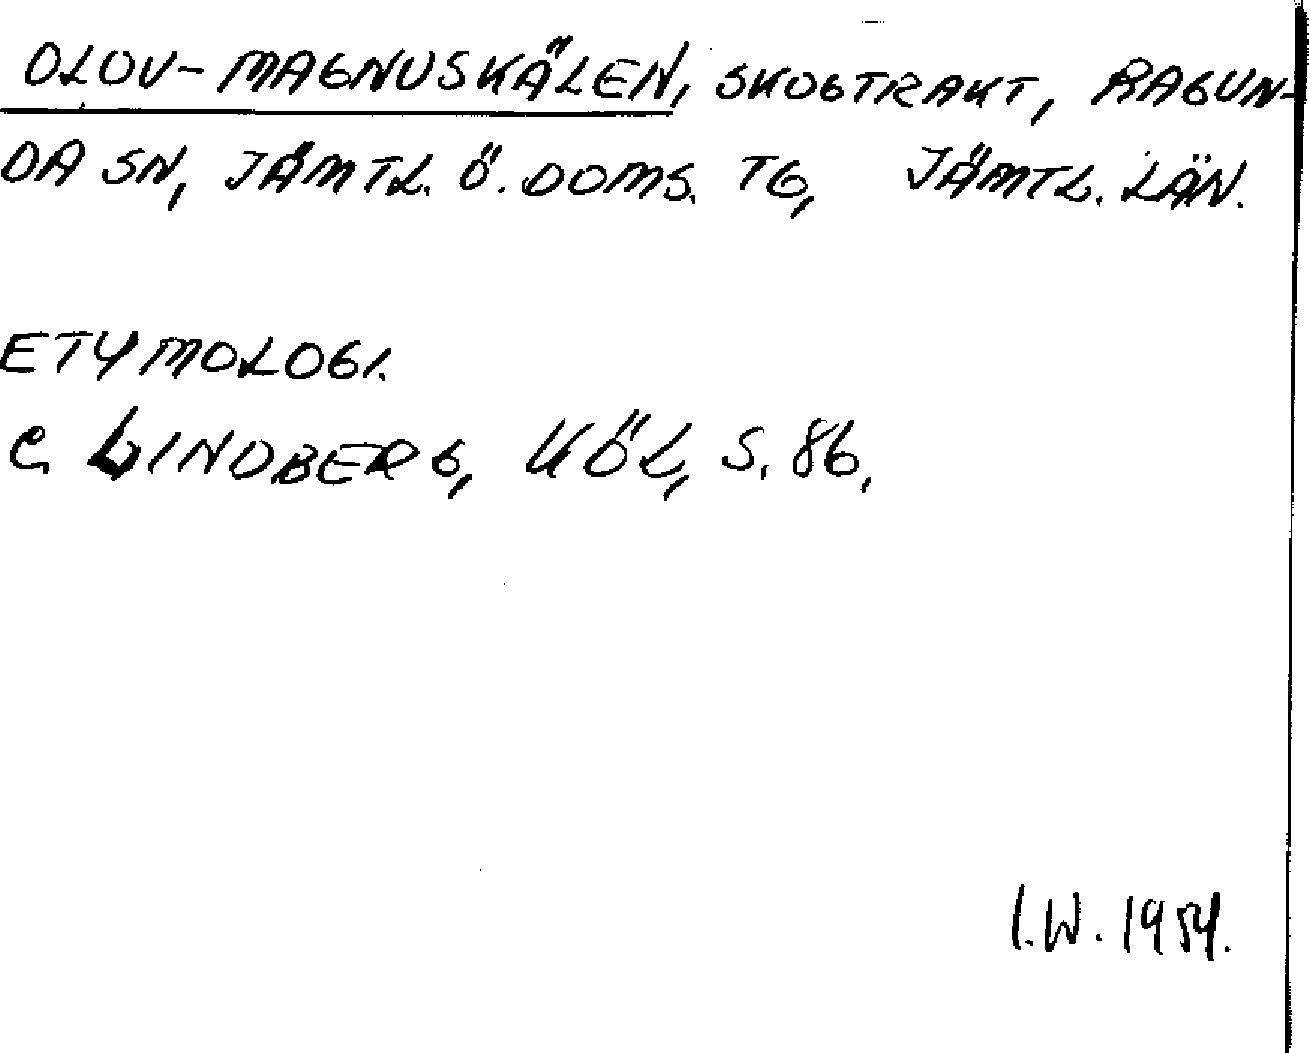 OLOV-MAGNUSKÄLEN, SKOGTRAKT, RAGUN-
DA SN, JÄMTL. Ö. DOMS. TG, JÄMTL. LÄN.
ETYMOLOGI.
C. LINDBERG, KÖL, S. 86,
I.W. 1954.